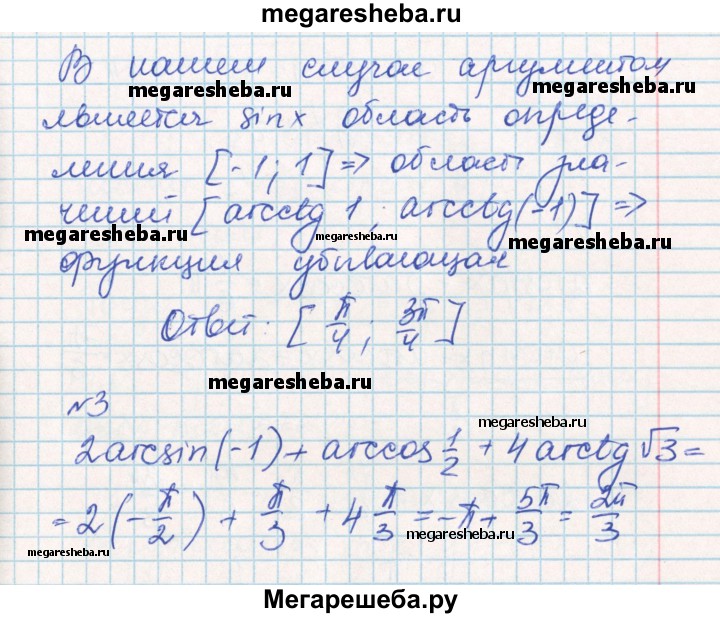 megaresheba.ru
В нашем случае аргументом
megaresheba.ru megaresheba.ru
является sinx область опреде-
ления [-1; 1] => область зна-
чений [arcctg 1; arcctg(-1)] =>
megaresheba.ru megaresheba.ru megaresheba.ru
функция убывающая
Ответ: [π/4; 3π/4]
megaresheba.ru
№3
megaresheba.ru
2arcsin(-1) + arccos 1/2 + 4arctg √3 =
= 2(-π/2) + π/3 + 4 π/3 = -π + 5π/3 = 2π/3
megaresheba.ru megaresheba.ru
Мегарешеба.ру